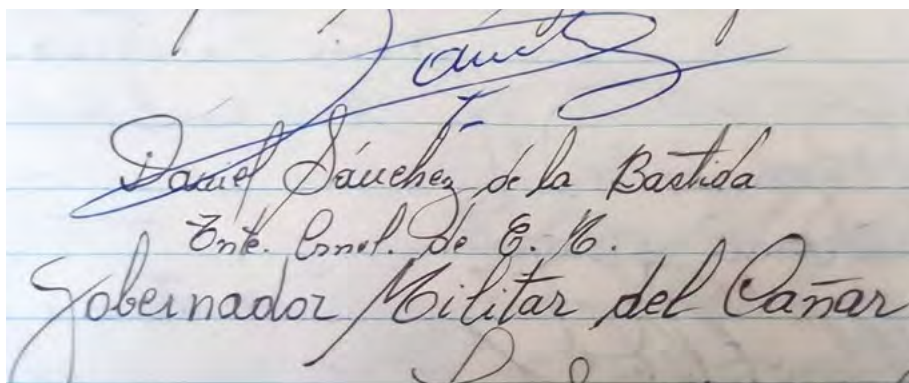 Daniel Sánchez de la Bastida
Tnte. Crnel. de E. M.
Gobernador Militar del Cañar